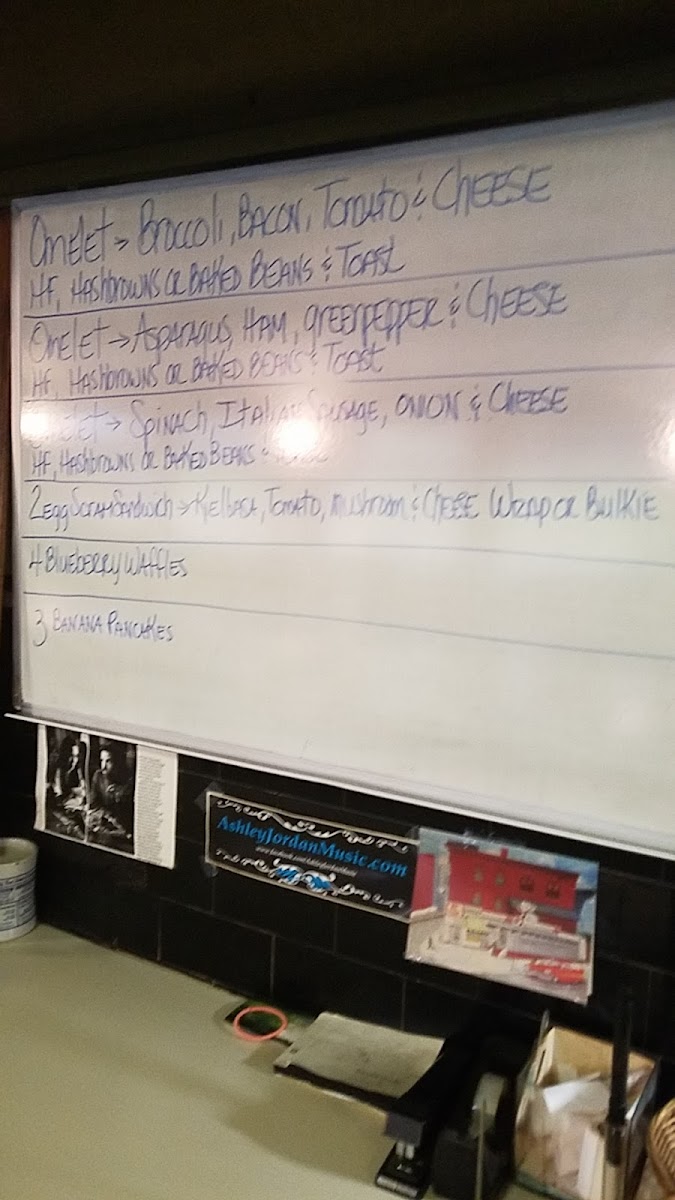 Omelet → Broccoli, Bacon, Tomato & Cheese
HF, Hashbrowns or Baked Beans & Toast
Omelet → Asparagus, Ham, greenpepper & Cheese
HF, Hashbrowns or Baked Beans & Toast
Omelet → Spinach, Italian Sausage, onion & Cheese
HF, Hashbrowns or Baked Beans &
2 egg Scram Sandwich → Kelbasa, Tomato, mushrom & Cheese Wrap or Bulkie
4 Blueberry Waffles
3 Banana Pancakes
AshleyJordanMusic.com